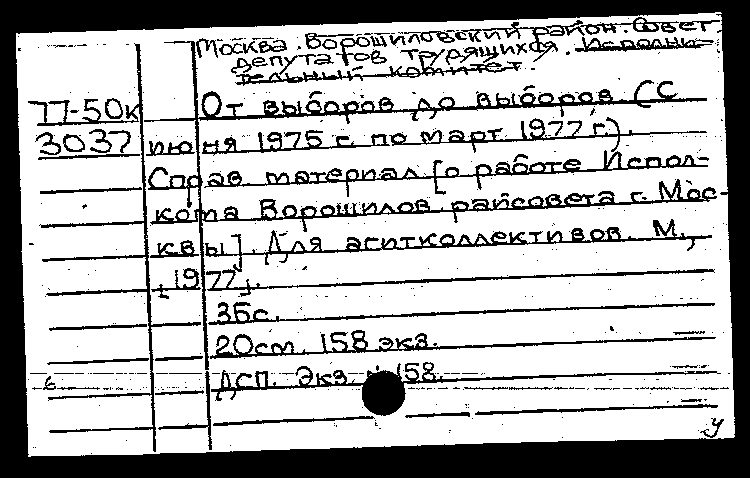 Москва. Ворошиловский район. Совет
депутатов трудящихся. Исполни-
тельный комитет.
77-50к От выборов до выборов (С
3037 июня 1975 г. по март 1977 г.).
Справ. материал [о работе Испол-
кома Ворошилов. райсовета г. Мос-
квы]. Для агитколлективов. М.,
[1977].
36с.
20см. 158 экз.
6 ДСП. Экз. 158.
У